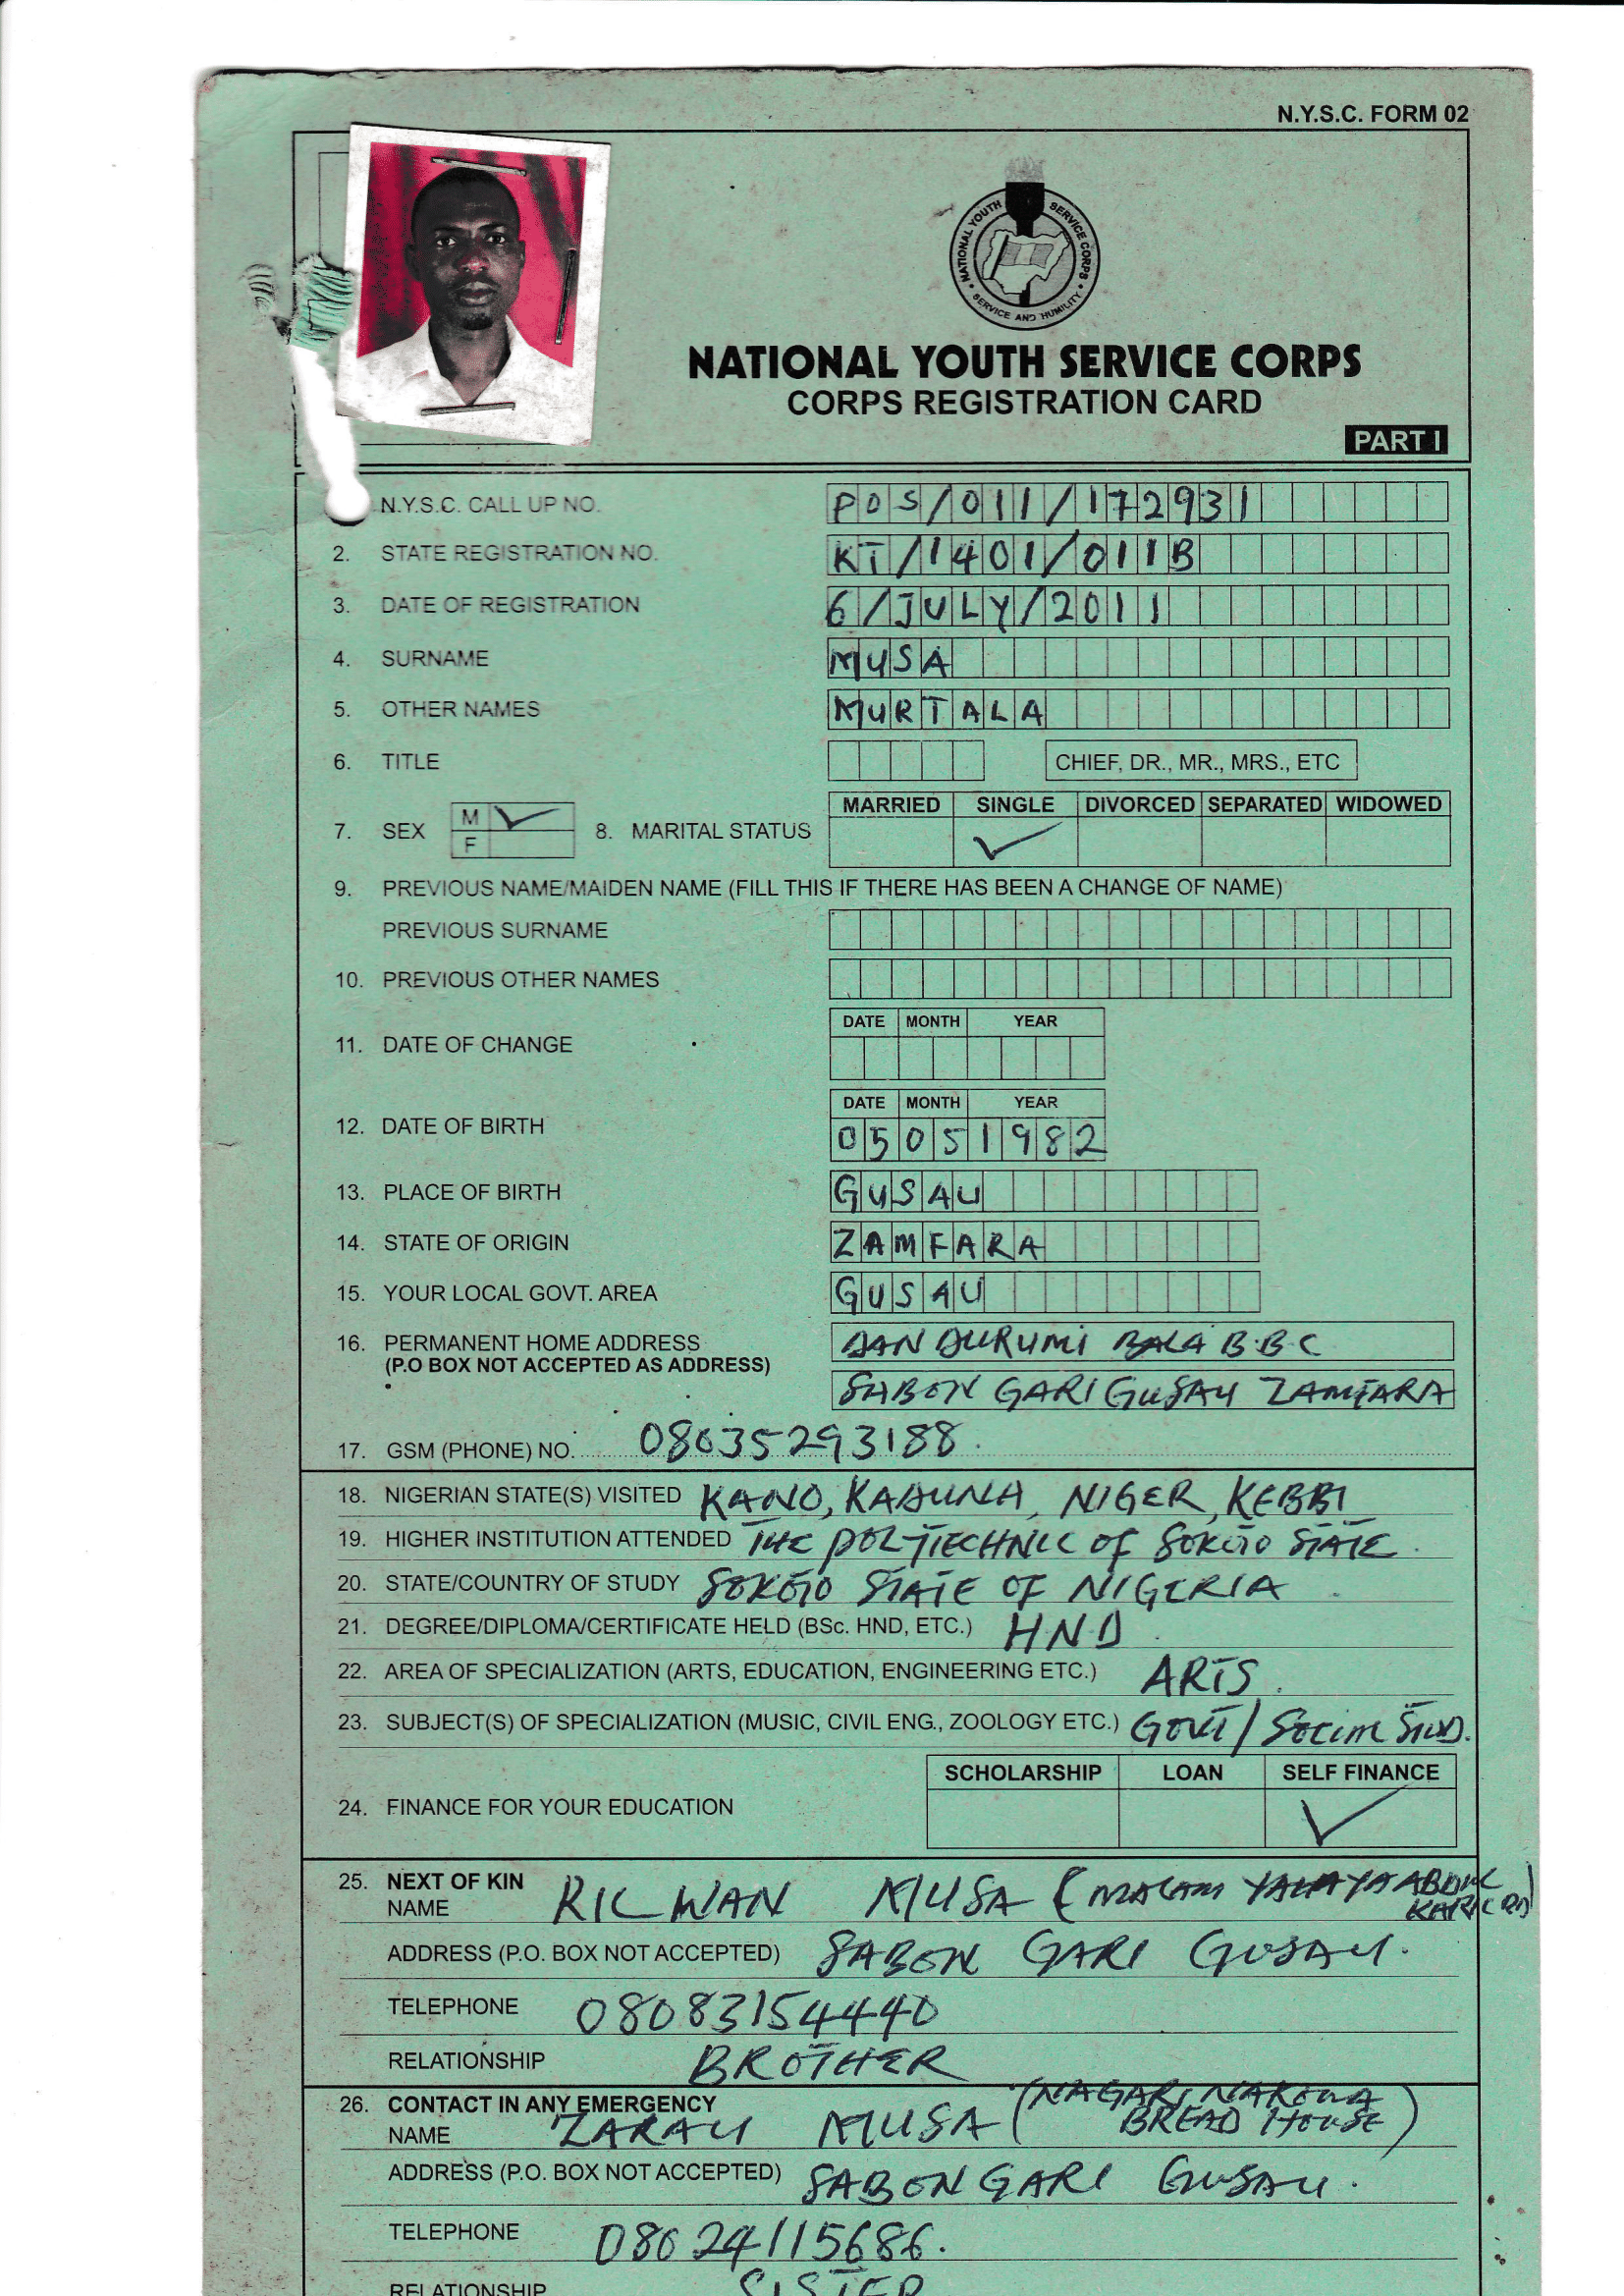 N.Y.S.C. FORM 02
NATIONAL YOUTH SERVICE CORPS
SERVICE AND HUMILITY
NATIONAL YOUTH SERVICE CORPS
CORPS REGISTRATION CARD
PART I
N.Y.S.C. CALL UP NO. POS/011/172931
2. STATE REGISTRATION NO. KT/1401/011B
3. DATE OF REGISTRATION 6/JULY/2011
4. SURNAME MUSA
5. OTHER NAMES MURTALA
6. TITLE CHIEF, DR., MR., MRS., ETC
MARRIED SINGLE DIVORCED SEPARATED WIDOWED
7. SEX M F 8. MARITAL STATUS
9. PREVIOUS NAME/MAIDEN NAME (FILL THIS IF THERE HAS BEEN A CHANGE OF NAME)
PREVIOUS SURNAME
10. PREVIOUS OTHER NAMES
DATE MONTH YEAR
11. DATE OF CHANGE
DATE MONTH YEAR
12. DATE OF BIRTH 05 05 1982
13. PLACE OF BIRTH GUSAU
14. STATE OF ORIGIN ZAMFARA
15. YOUR LOCAL GOVT. AREA GUSAU
16. PERMANENT HOME ADDRESS DAN DURUMI BALA B.B.C
(P.O BOX NOT ACCEPTED AS ADDRESS) SABON GARI GUSAU ZAMFARA
17. GSM (PHONE) NO. 08035293188.
18. NIGERIAN STATE(S) VISITED KANO, KADUNA, NIGER, KEBBI
19. HIGHER INSTITUTION ATTENDED THE POLYTECHNIC OF SOKOTO STATE.
20. STATE/COUNTRY OF STUDY SOKOTO STATE OF NIGERIA
21. DEGREE/DIPLOMA/CERTIFICATE HELD (BSc. HND, ETC.) HND
22. AREA OF SPECIALIZATION (ARTS, EDUCATION, ENGINEERING ETC.) ARTS.
23. SUBJECT(S) OF SPECIALIZATION (MUSIC, CIVIL ENG., ZOOLOGY ETC.) GOVT/SOCIAL STUD.
SCHOLARSHIP LOAN SELF FINANCE
24. FINANCE FOR YOUR EDUCATION
25. NEXT OF KIN
NAME RILWAN MUSA (MALAM YAHAYA ABDUL
ADDRESS (P.O. BOX NOT ACCEPTED) SABON GARI GUSAU.
TELEPHONE 08083154440
RELATIONSHIP BROTHER
26. CONTACT IN ANY EMERGENCY
NAME ZARAU MUSA (NAGARI NAKOWA
BREAD HOUSE)
ADDRESS (P.O. BOX NOT ACCEPTED) SABON GARI GUSAU.
TELEPHONE 08024115686.
RELATIONSHIP SISTER